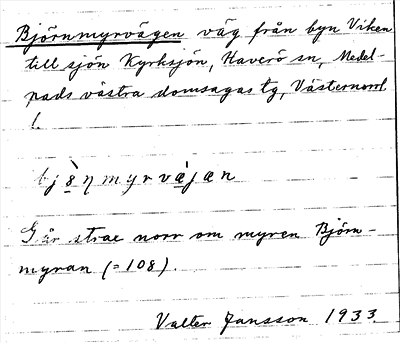 Björnmyrvägen väg från byn Viken
till sjön Kyrksjön, Haverö sn, Medel-
pads västra domsagas tg, Västernorrl.
l.
Går strax norr om myren Björn-
myran (=108).
Valter Jansson 1933.